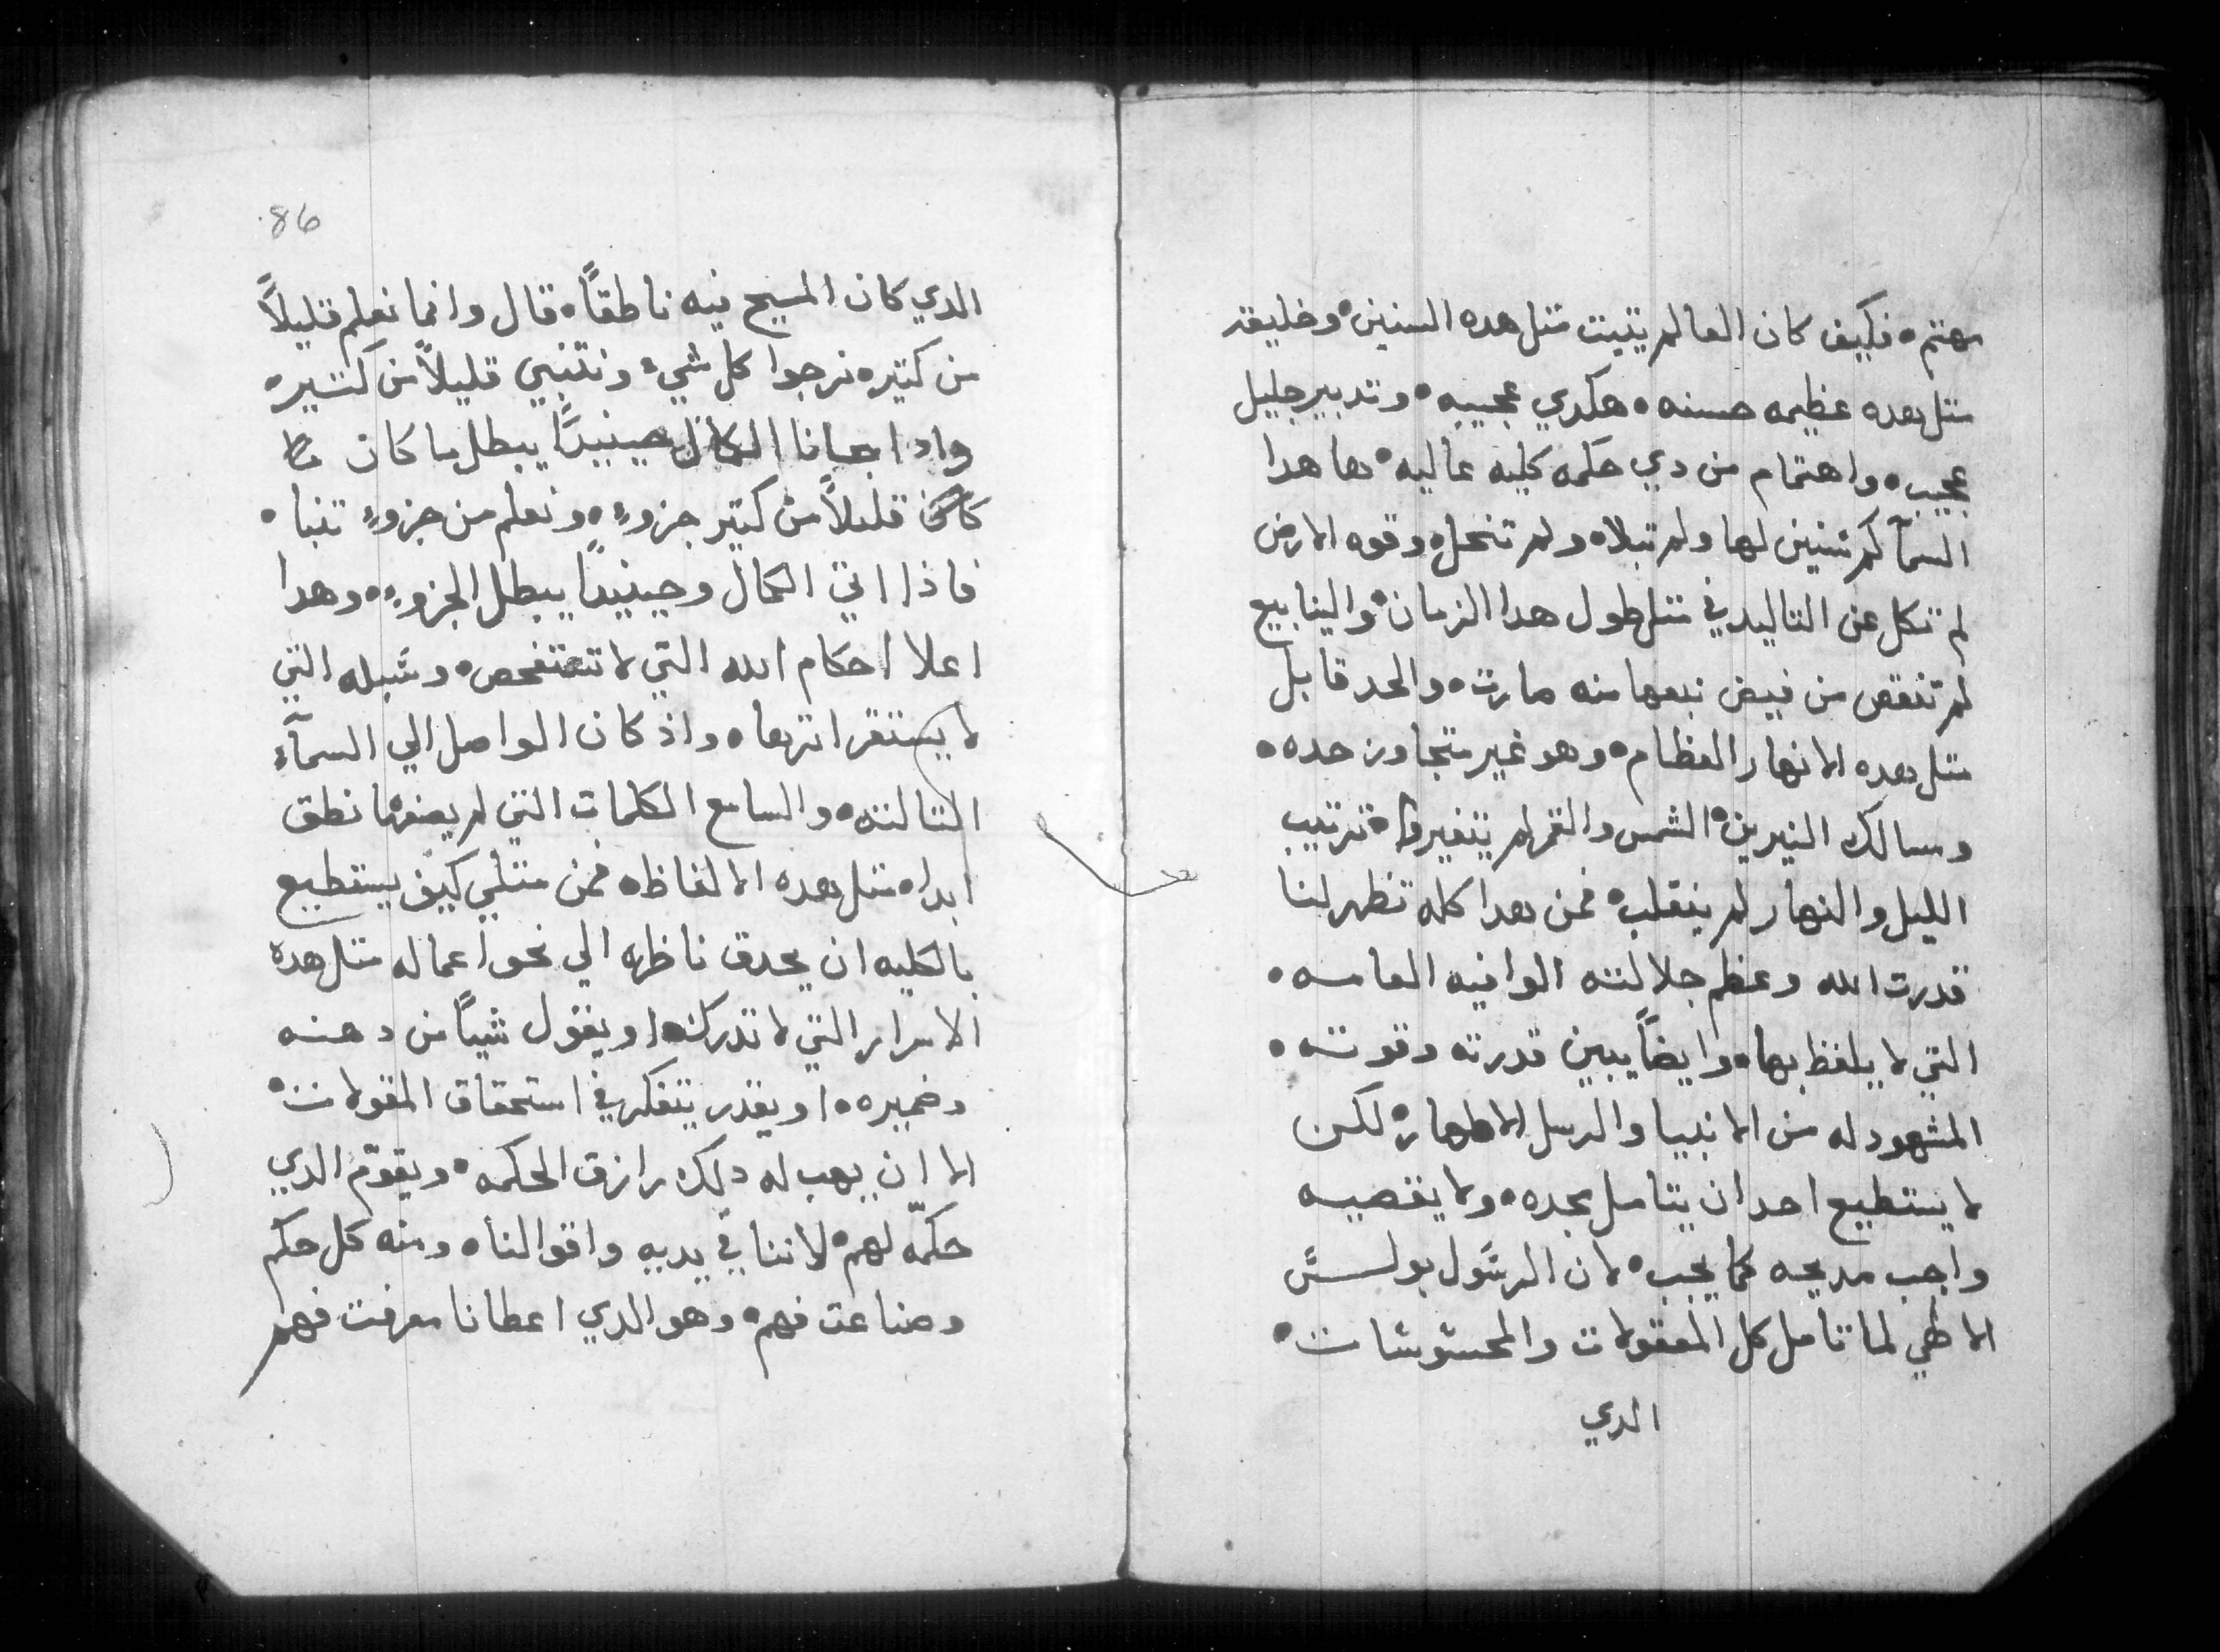 مهتم ه فكيف كان العالم يتبت متل هده السنين ه وخليقه
متل هده عظيمه حسنه ه هكدي عجيبه ه وتدبير جليل
عجيب ه واهتمام من دي حكمه كليه عاليه ه ها هدا
السمآ كم سنين لها ولم تبلا ه ولم تنحل ه وقوه الارض
لم تكل عن التاليد في متل طول هدا الزمان ه والينابيع
لم تنقص من فيض نبعها منه صارت ه والحد قابل
متل هده الانهار العظام ه وهو غير متجاوز حده ه
ومسالك النيرين ه الشمس والقمر لم يتغيروا ه ترتيب
الليل والنهار لم ينقلب ه فمن هدا كله تظهر لنا
قدرت الله وعظم جلالته الوافيه العامه ه
التي لا يلفظ بها ه وايضاً يبين قدرته وقوته ه
المشهود له من الانبيا والرسل الاطهار ه لكن
لا يستطيع احد ان يتامل مجده ه ولا يقصيه
واجب مديحه كما يجب ه لان الرسول بولس
الالهي لما تامل كل المعقولات والمحسوسات ه
الدي
86
الدي كان المسيح فيه ناطقاً ه قال وانما نعلم قليلاً
من كتير ه نرجوا كل شيء ونتنبي قليلاً من كتير ه
واذا جانا الكمال حينيداً يبطل ما كان
قليلاً من كتير جزوءٍ ه ونعلم من جزوءٍ نتنبا ه
فاذا اتي الكمال وحينيداً يبطل الجزوء ه وهدا
اعلا احكام الله التي لا تتفحص ه وسبله التي
لا يستقرا اترها ه واذ كان الواصل الي السمآء
التالته ه والسامع الكلمات التي لم يصفها نطق
ابدا ه متل هده الالفاظ ه فمن متلي كيف يستطيع
بالكليه ان يحدق ناظره الي نحو اعماله متل هده
الاسرار التي لا تدرك ه او يقول شياً من دهنه
وضميره ه او يقدر يتفكر في استحقاق المقولات ه
الا ان يهب له دلك رازق الحكمه ه ويقوّم الدي
حكمّه لهم ه لاننا في يديه واقوالنا ه ومنه كل حكم
وصناعت فهم ه وهو الدي اعطانا معرفت فهم